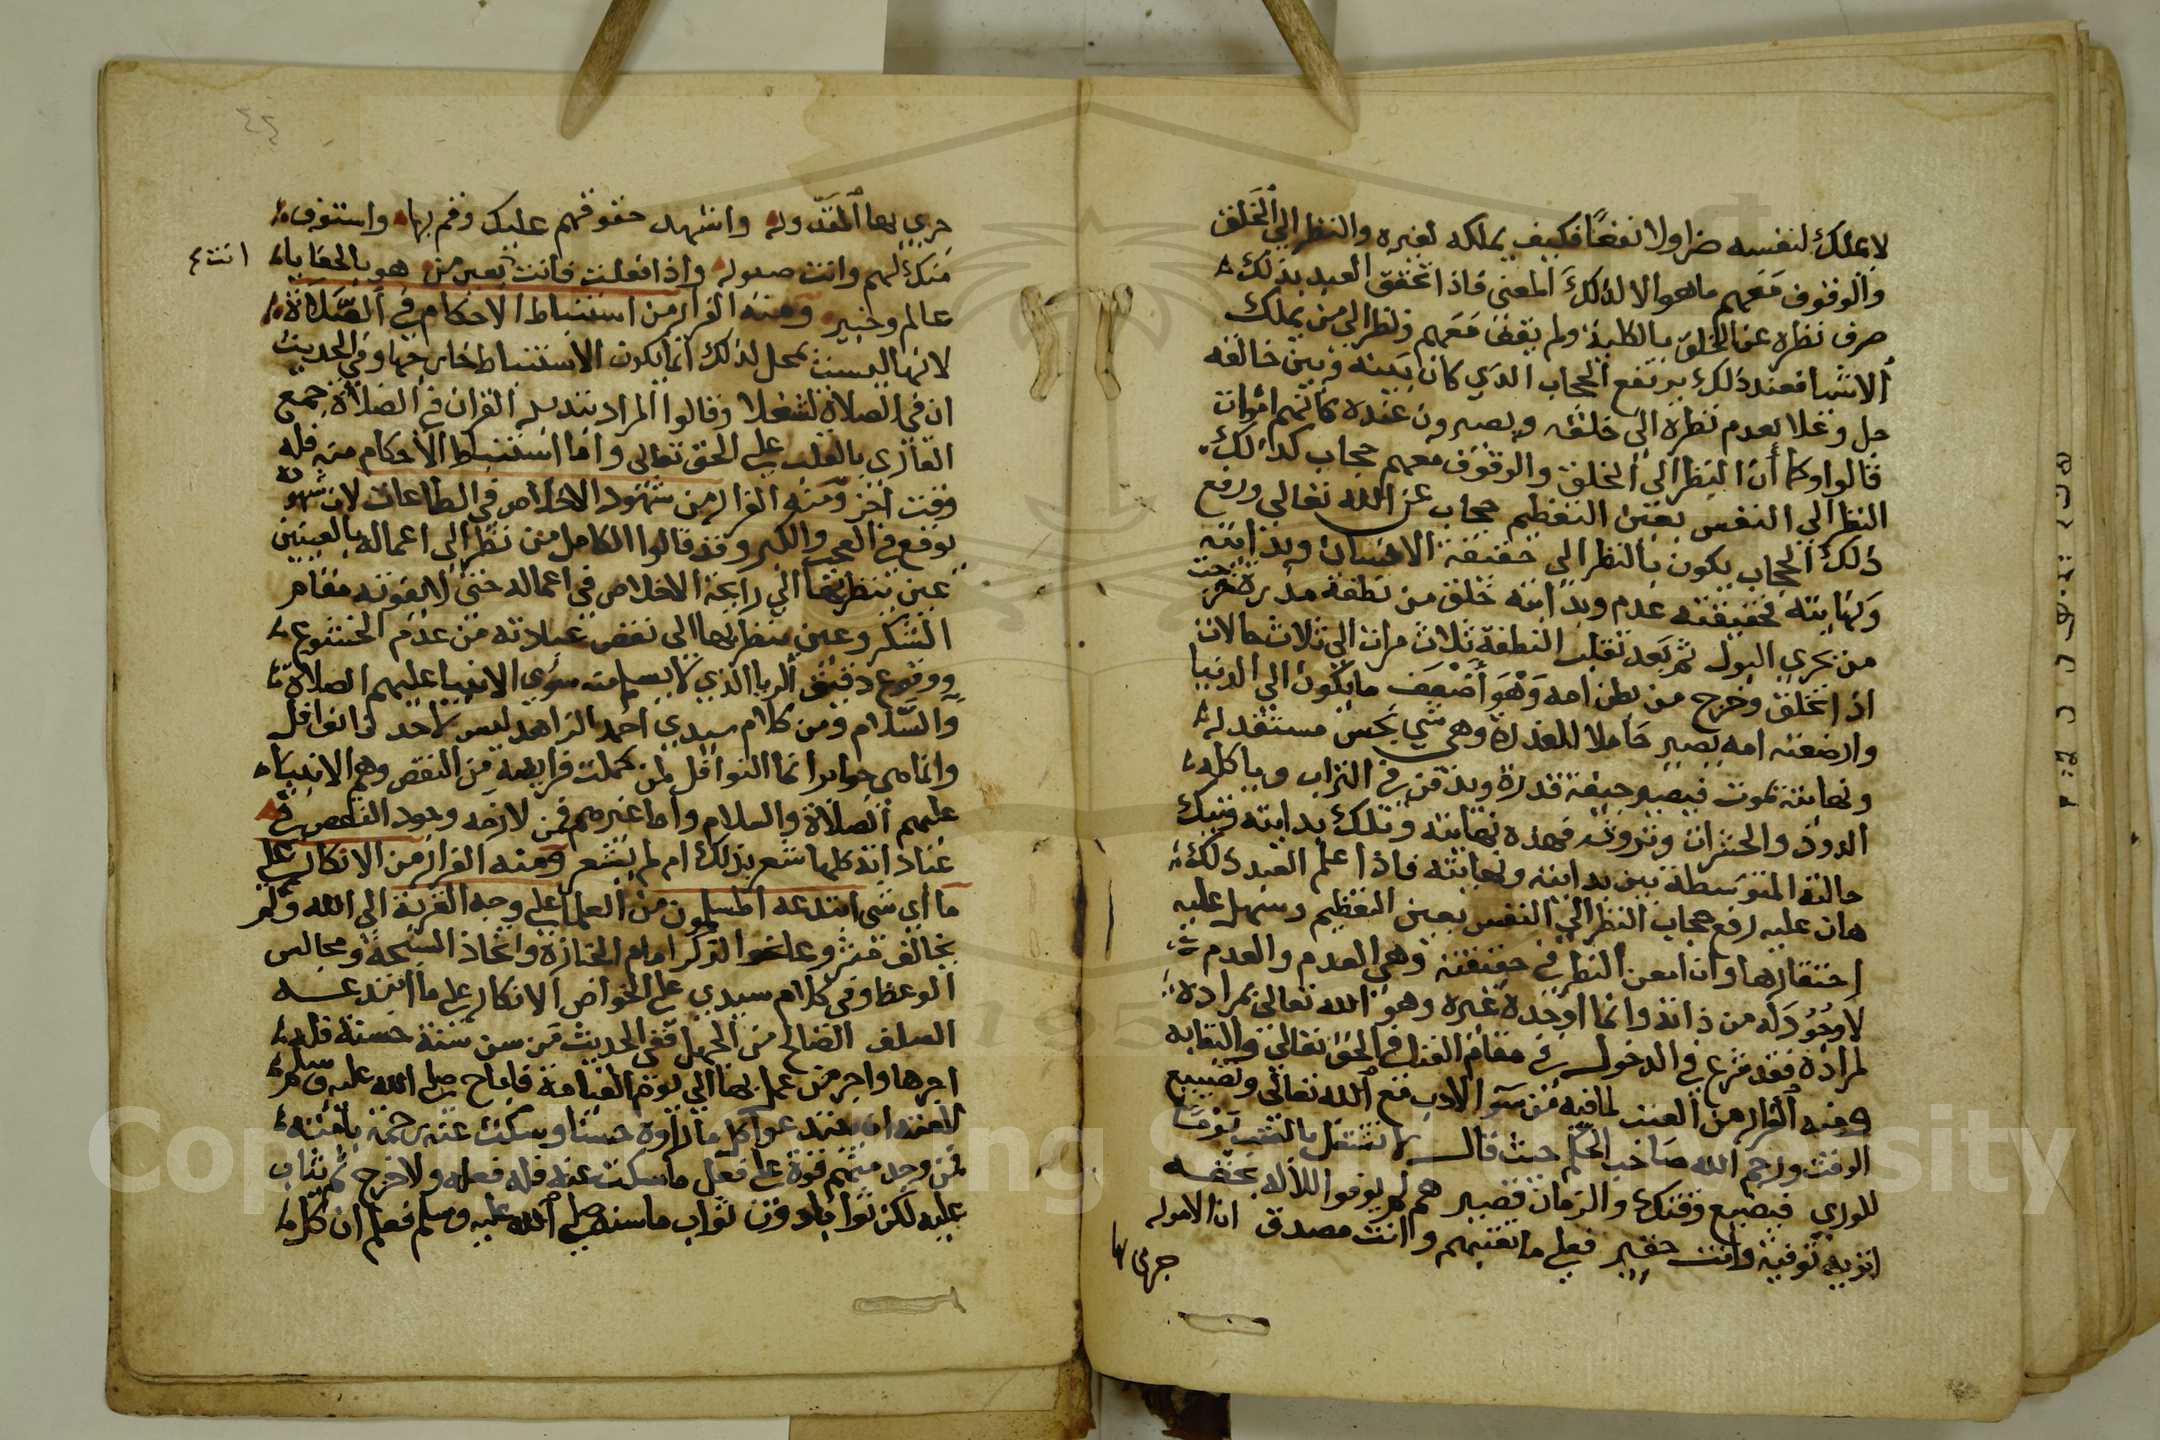 لا يملك لنفسه ضرا ولا نفعًا فكيف يملكه لغيره والنظر الي الخلق
والوقوف معهم ما هو الا لذلك المعنى فاذا تحقق العبد بذلك
صرف نظره عن الخلق بالكلية ولم يقف معهم ونظر الي من يملك
الاشيا فعند ذلك يرتفع الحجاب الذي كان بينه وبين خالقه
جل وعلا بعدم نظره الى خلقه ويصيرون عنده كانهم اموات
قالوا وكما أن النظر الي الخلق والوقوف معهم حجاب كذلك
النظر الي النفس بعين التعظيم حجاب عن الله تعالى ورفع
ذلك الحجاب يكون بالنظر الى حقيقة الانسان وبدايته
ونهايته فحقيقته عدم وبدايته خلق من نطفة مذرة خرجت
من مجري البول ثم بعد تقلب النطفة ثلاث مرات الى ثلاث حالات
اذ اتخلق وخرج من بطن امه وهو أضعف ما يكون الي الدنيا
وارضعته امه يصير حاملا للعذرة وهي شي نجس مستقذر له
ونهايته يموت فيصير جيفة قذرة ويدفن في التراب وياكله
الدود والحشرات فهذه نهايته وتلك بدايته وتيك
حالته المتوسطة بين بدايته ونهايته فاذا علم العبد ذلك
هان عليه رفع حجاب النظر الي النفس بعين التعظيم وسهل عليه
احتقارها وان امعن النظر في حقيقته وهي العدم والعدم
لا وجُود له من ذاته وانما اوجده غيره وهو الله تعالى بمراده
لمراده فقد شرع في الدخول في مقام الفنا في الحق تعالى والبقا به
ومنه الفرار من العنت لما فيه من سوء الادب مع الله تعالى وتضييع
الوقت ورحم الله صاحب الحكم حيث قال لا تشتغل بالعتب يومًا
للوري فيضيع وقتك والزمان قصير هم لم يوفوا للاله بحقه
اتريد توفيه وانت حقير فعلي ما تعتبهم وانت مصدق ان الامور
جري بها
٤٤
جري بها المقدور وانت واشهد حقوقهم عليك وقم بها واستوف
منك لهم وانت صبور واذا فعلت فانت بعين من هو بالخفايا
انت ع
عالم وخبير ومنه الفرار من استنباط الاحكام في الصلاة
لانها ليست بمحل لذلك انما يكون الاستنباط خارجها وفي الحديث
ان في الصلاة لشغلا وقالوا المراد بتدبر القران في الصلاة جمع
القاري بالقلب على الحق تعالى واما استنباط الأحكام منه فله
وقت اخر ومنه الفرار من شهود الاخلاص في الطاعات لان شهوده
يوقع في العجب والكبر وقد قالوا الكامل من نظر الى اعماله بالعينين
عين ينظر بها الي رايحة الاخلاص في اعماله حتى لا يفوته مقام
الشكر وعين ينظر بها الى نقص عبادته من عدم الخشوع
ووقوع دقيق الريا الذي لا يسلم منه سوى الانبيا عليهم الصلاة
والسلام ومن كلام سيدي احمد الزاهد ليس لاحد نوافل
وانما هي جوابر انما النوافل لمن كملت فرايضه من النقص وهم الانبياء
عليهم الصلاة والسلام واما غيرهم فمن لازمه وجود النقص في
عباداته كلها شعر بذلك ام لم يشعر ومنه الفرار من الانكار على
ما أي شي ابتدعه المسلمون من العلما على وجه القربة الى الله ولم
يخالف مشروعا نحو الذكر امام الجنازة واتخاذ السبحة ومجالس
الوعظ وفي كلام سيدي على الخواص الانكار على ما ابتدعه
السلف الصالح من الجهل ففي الحديث من سن سنة حسنة فله
اجرها واجر من عمل بها الي يوم القيامة فاباح صلى الله عليه وسلم
لامته ان يبتدعوا كل ما راوه حسنا وسكت عنه رحمة بامته
فمن وجد منهم قوة على فعل ما سكت عنه فله فعله ولا حرج ثم يثاب
عليه لكن ثوابا دون ثواب ما سنه صلى الله عليه وسلم فعلم ان كل ما
Copyright © King Saud University
1957